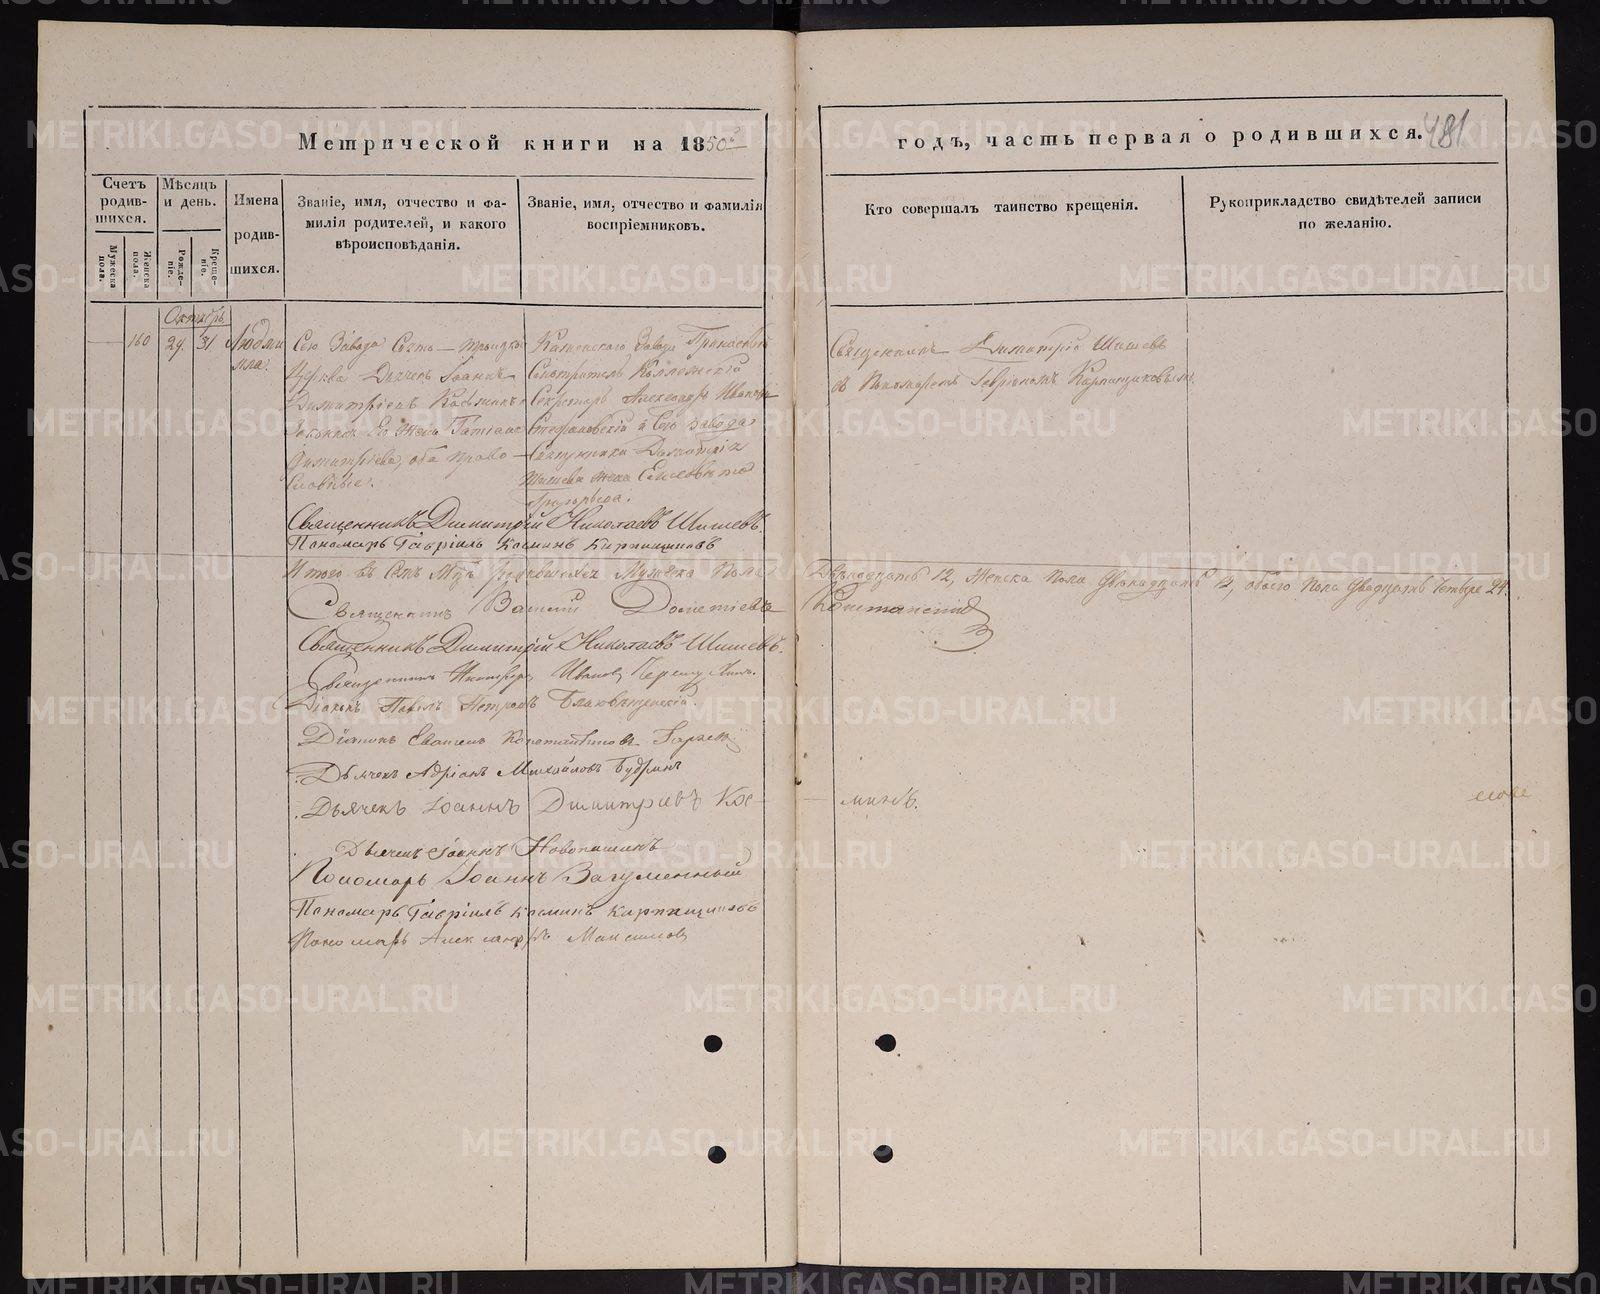 Метрической книги на 1850й годъ, часть первая о родившихся. 481
Счетъ родив-шихся.
Мѣсяцъ и день.
Имена родив-шихся.
Званіе, имя, отчество и фа-
милія родителей, и какого
вѣроисповѣданія.
Званіе, имя, отчество и фамилія
воспріемниковъ.
Кто совершалъ таинство крещенія.
Рукоприкладство свидѣтелей записи
по желанію.
Мужеска пола.
Женска пола.
Рожде-ніе.
Креще-ніе.
Октябрь
160 29. 31 Людми
мла.
Сего Завода Свято-Троицкой
Церкви Дьячекъ Іоаннъ
Димитріевъ Косминъ
Законная Его Жена Татіана
Димитріева, оба право-
славные.
Каменскаго Завода
Смотритель Коллежскій
Секретарь Александръ Ивановъ
Стефановскій и Сего Завода
Священника Димитрія
Шишева жена Елисавета
Григорьева.
Священникъ Димитрій Шишевъ
съ Пономаремъ Гавріиломъ Карпинщиковымъ.
Священникъ Димитрій Николаевъ Шишевъ.
Панамарь Гавріилъ Косминъ Карпинщиковъ
Итого въ семъ Мцѣ родившихся Мужеска Пола Двѣнадцать 12, Женска Пола Двѣнадцать 12, обоего Пола Двадцать Четыре 24.
Священникъ Василій Дометіевъ Константиновъ
Священникъ Димитрій Николаевъ Шишевъ.
Священникъ Никифоръ Ивановъ
Діаконъ Павелъ Петровъ Благовѣщенскій.
Діаконъ Константиновъ
Дьячекъ Адріанъ Михайловъ Будринъ
Дьячекъ Іоаннъ Димитріевъ Кос-
минъ.
Дьячекъ Іоаннъ Новопашинъ
Пономарь Іоаннъ Загуменный
Панамарь Гавріилъ Косминъ Карпинщиковъ
Пономарь Александръ Максимовъ
METRIKI.GASO-URAL.RU